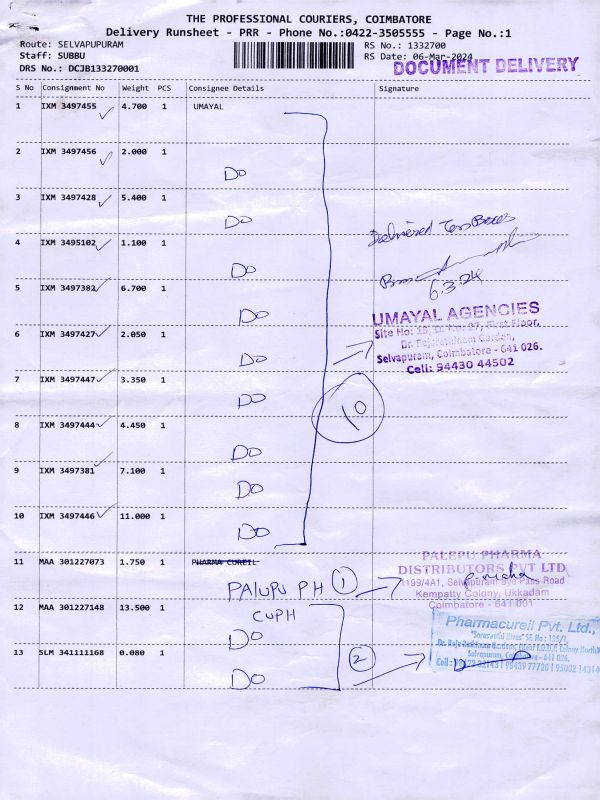 THE PROFESSIONAL COURIERS, COIMBATORE
Delivery Runsheet - PRR - Phone No.:0422-3505555 - Page No.:1
Route: SELVAPUPURAM
RS No.: 1332700
Staff: SUBBU
RS Date: 06-Mar-2024
DRS No.: DCJB133270001
DOCUMENT DELIVERY
S No Consignment No Weight PCS Consignee Details Signature
1 IXM 3497455 4.700 1 UMAYAL
2 IXM 3497456 2.000 1
Do
3 IXM 3497428 5.400 1
Do
Delivered Ten Boxes
4 IXM 3495102 1.100 1
Do
6.3.24
5 IXM 3497382 6.700 1
Do
UMAYAL AGENCIES
Site No: 15, D. No: 27, First Floor,
6 IXM 3497427 2.050 1
Dr. Rajarathinam Garden,
Do
Selvapuram, Coimbatore - 641 026.
Cell: 94430 44502
7 IXM 3497447 3.350 1
Do
10
8 IXM 3497444 4.450 1
Do
9 IXM 3497381 7.100 1
Do
10 IXM 3497446 11.000 1
Do
11 MAA 301227073 1.750 1 PHARMA CUREIL
PALEPU PHARMA
DISTRIBUTORS PVT LTD
PALUPU PH 1
199/4A1, Selvapuram Bye Pass Road
Kempatty Colony, Ukkadam
Coimbatore - 641 001
12 MAA 301227148 13.500 1
CUPH
Do
Pharmacureil Pvt. Ltd.,
13 SLM 341111168 0.080 1
2
Selvapuram, Coimbatore - 641 026.
Do